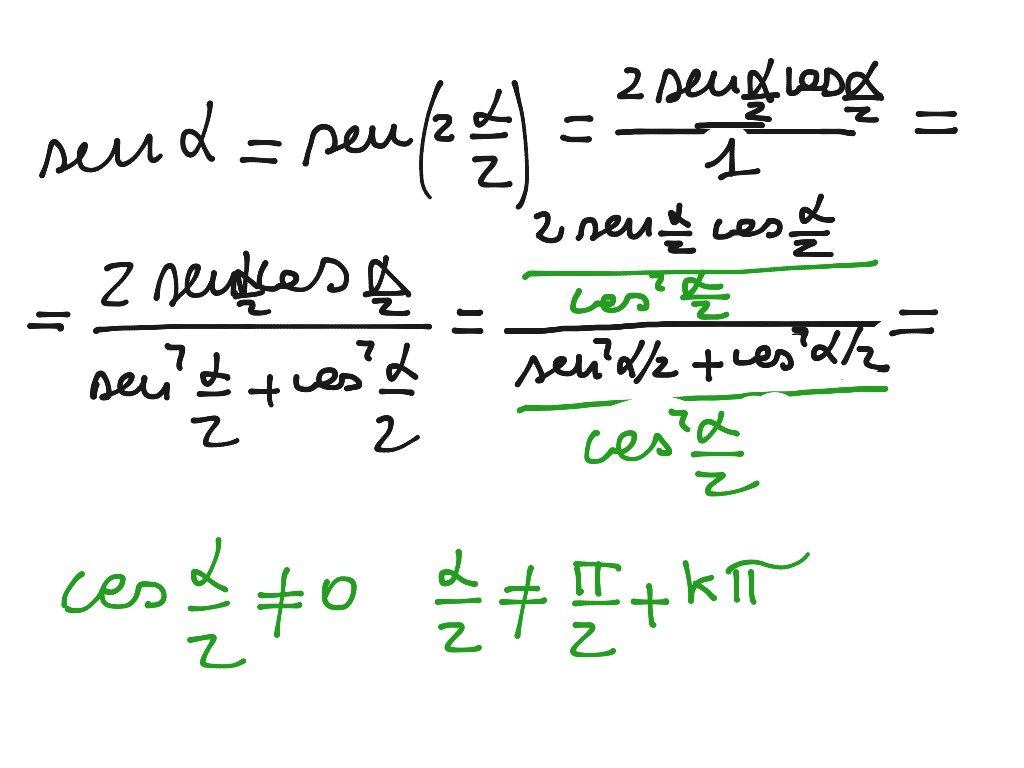 sen α = sen (2 α/2) = (2 sen α/2 cos α/2)/1 =
= (2 sen α/2 cos α/2)/(sen² α/2 + cos² α/2) = ((2 sen α/2 cos α/2)/(cos² α/2))/((sen² α/2 + cos² α/2)/(cos² α/2)) =
cos α/2 ≠ 0 α/2 ≠ π/2 + kπ